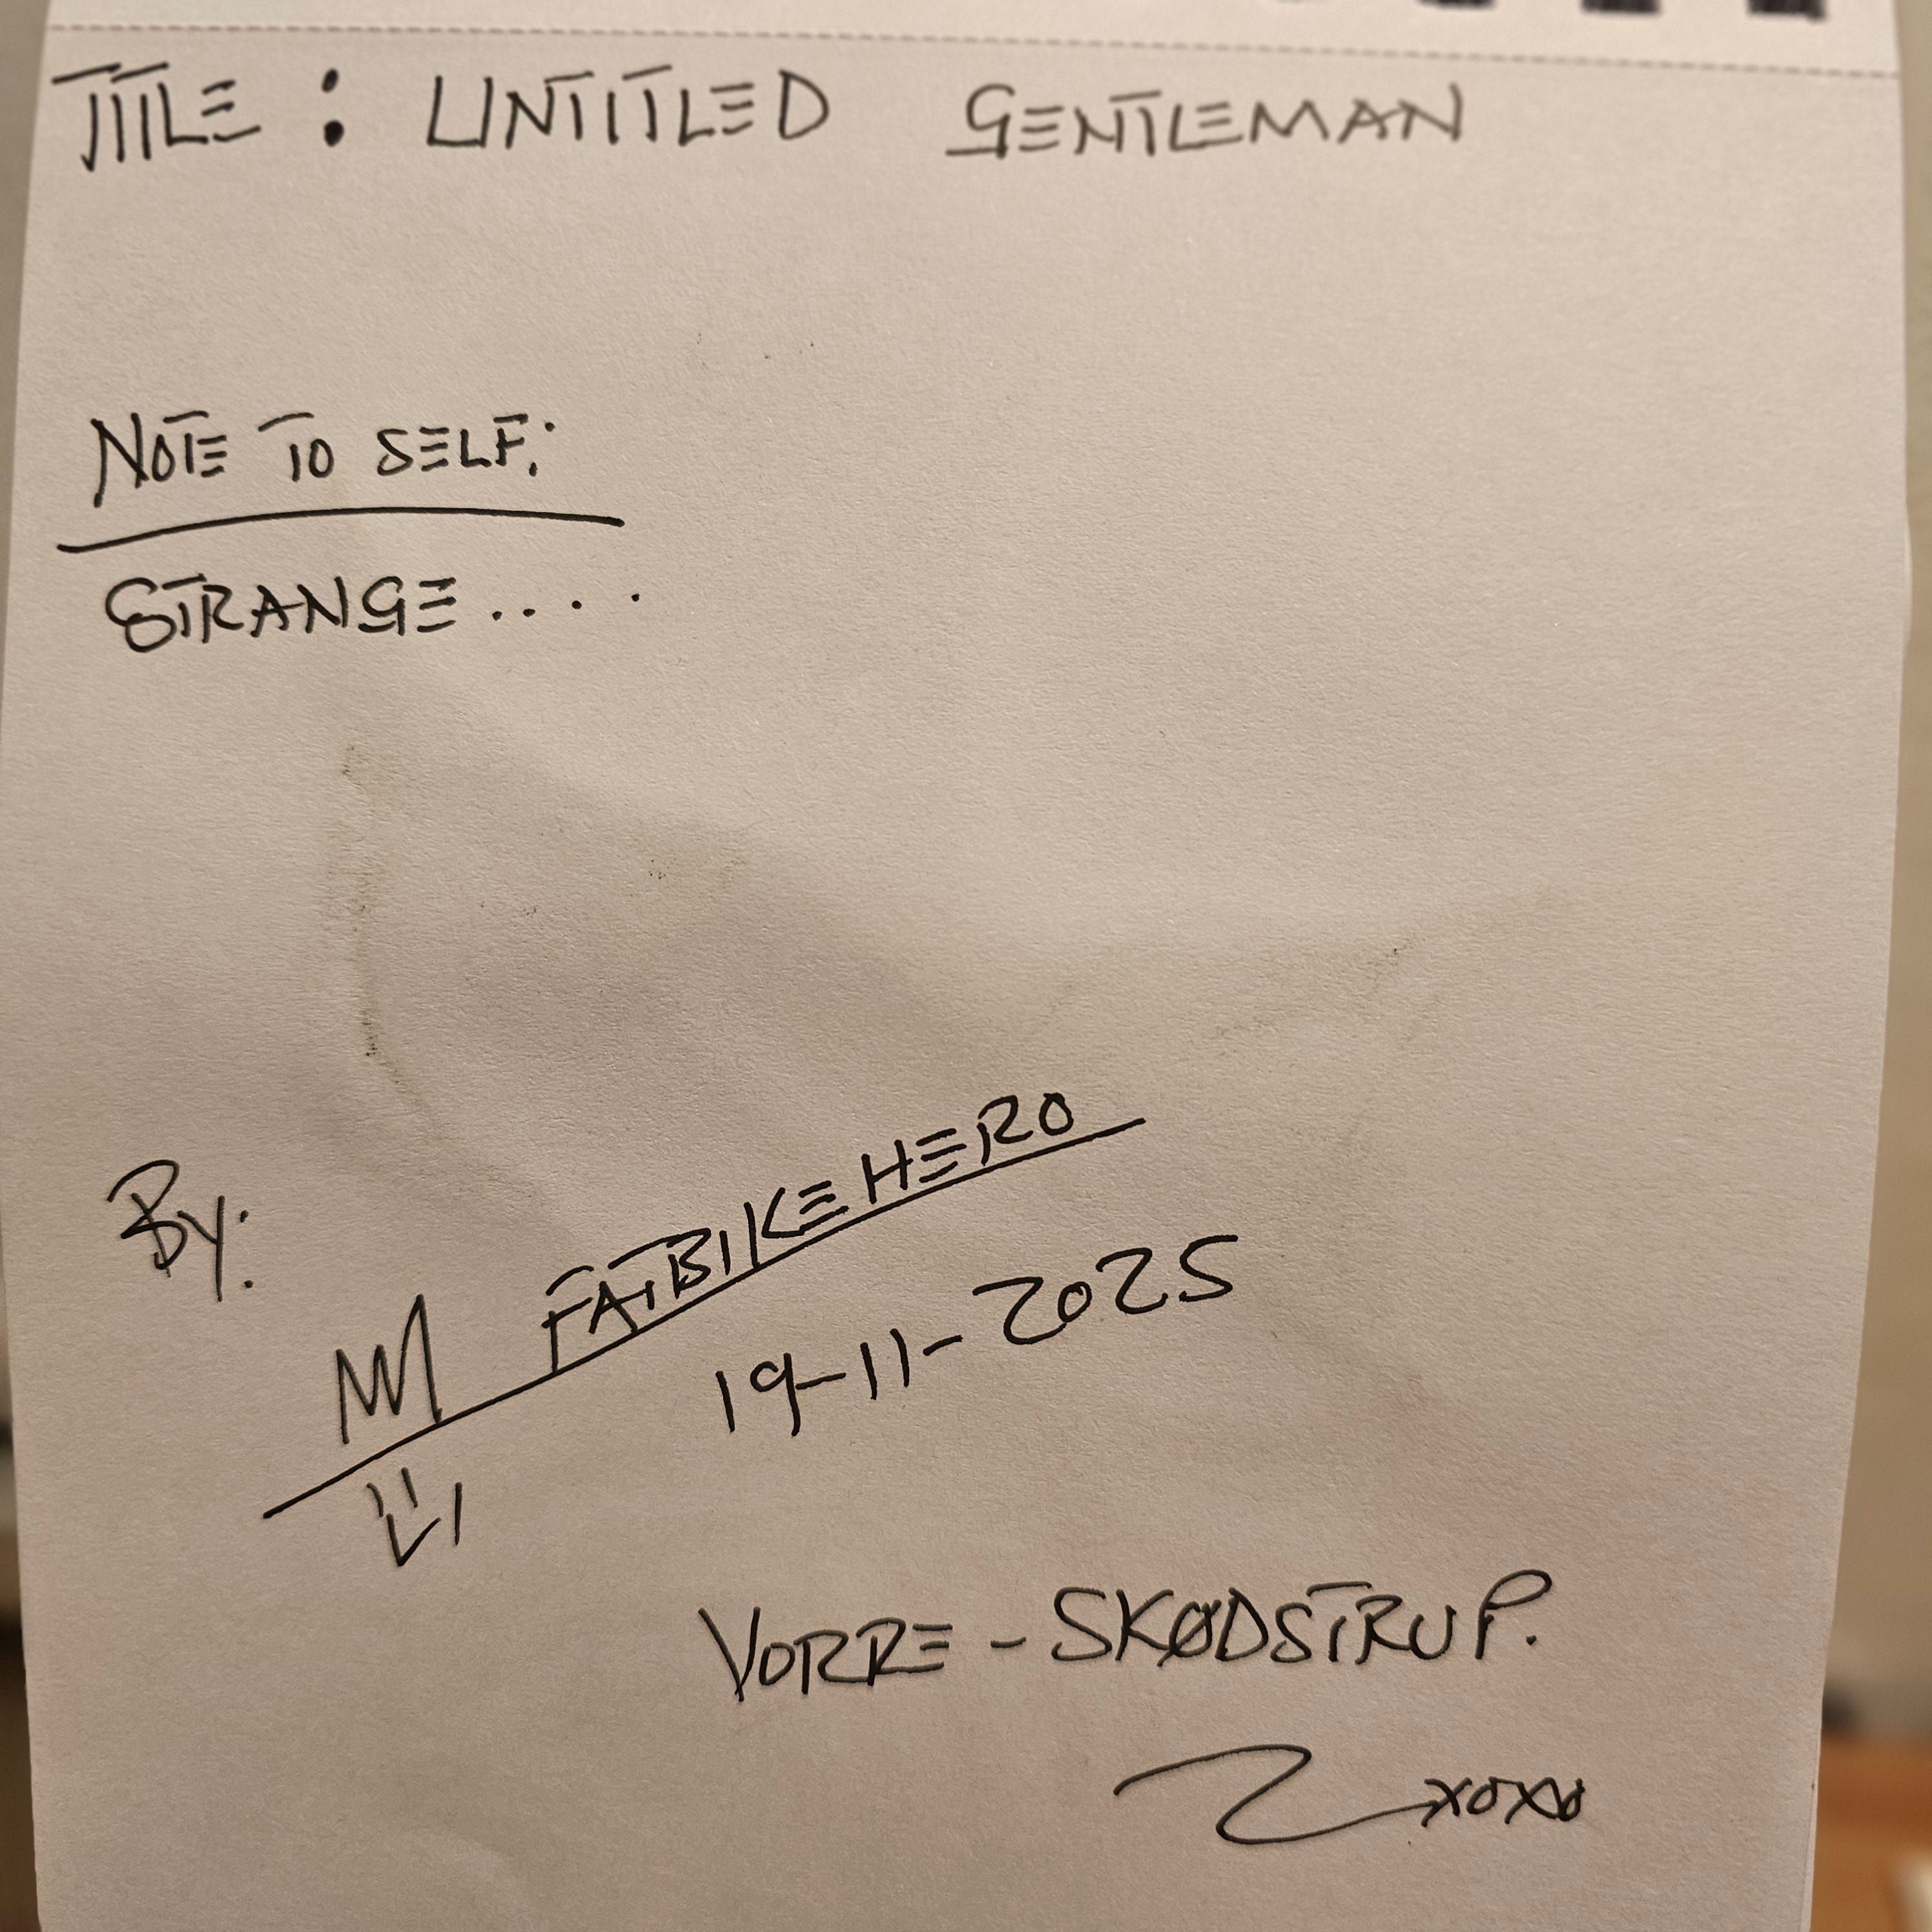 TITLE : UNTITLED GENTLEMAN
NOTE TO SELF:
STRANGE....
By:
FATBIKEHERO
19-11-2025
VORRE - SKØDSTRUP.
xoxo